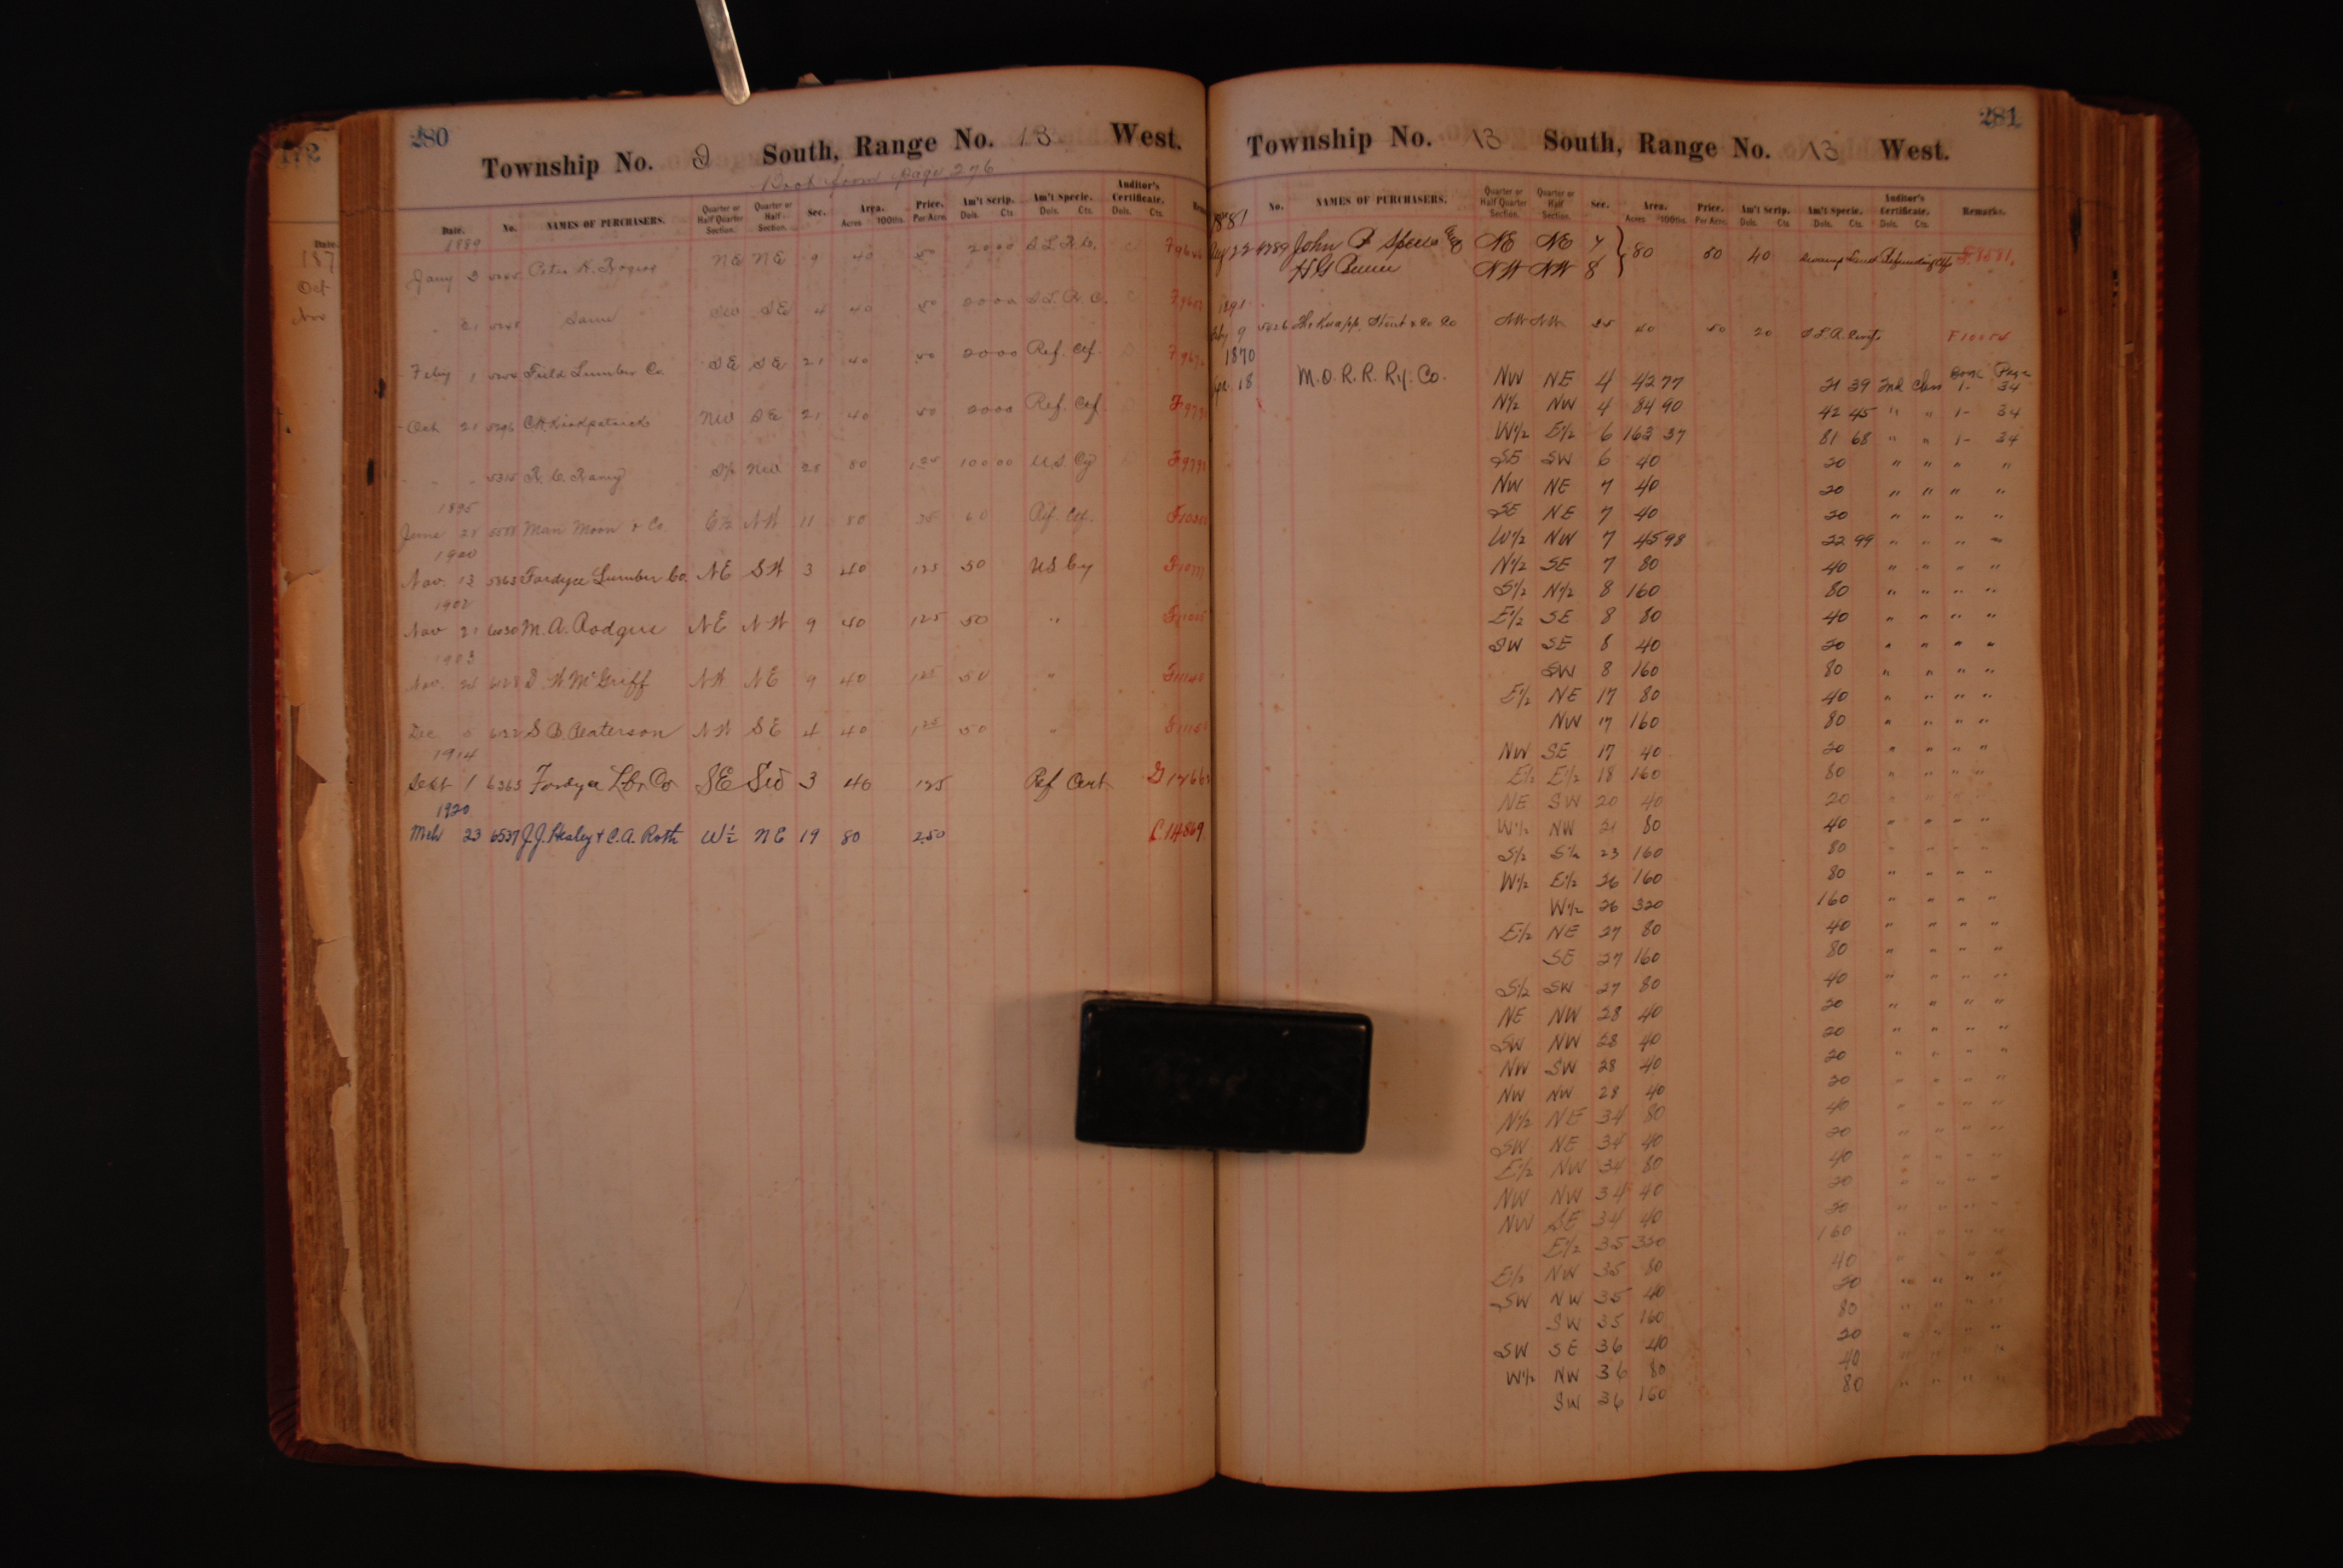 172
Date.
187
Oct
Nov
280
Township No. 9 South, Range No. 13 West.
Bro't from page 276
Date. No. NAMES OF PURCHASERS. Quarter or Half Quarter Section. Quarter or Half Section. Sec. Area. Acres 100ths. Price. Per Acre. Am't Scrip. Dols. Cts. Am't Specie. Dols. Cts. Auditor's Certificate. Dols. Cts.
1889
Jany 2 Peter K. Rogers NE NE 9 40 50 20 00 S.L.R.C.
21 Same SW SE 4 40 50 20 00 S.L.R.C.
Feby 1 Field Lumber Co SE SE 21 40 50 20 00 Ref. Cef.
Oct 21 5296 C.K. Kirkpatrick NW SE 21 40 50 20 00 Ref. Cef.
" " 5315 R. C. Raney NW 28 80 1 25 100 00 U.S. Cy
1895
June 28 5588 Man Moon & Co. E½ NW 11 80 60 Ref. Cef.
1900
Nov. 13 Fordyce Lumber Co. NE SW 3 40 125 50 US Cy
1902
Nov 21 6030 M.A. Rodgers NE NW 9 40 125 50 "
1903
Nov. 24 6128 D. W McGriff NW NE 9 40 125 50 "
Dec 5 S B. Peaterson NW SE 4 40 1 25 50 "
1914
Sept 1 6363 Fordyce Lbr Co SE SW 3 40 125 Ref Cert
1920
Mch 23 6537 J.J. Healey & C.A. Roth W½ NE 19 80 2.50 L.14869
281
Township No. 13 South, Range No. 13 West.
No. NAMES OF PURCHASERS. Quarter or Half Quarter Section. Quarter or Half Section. Sec. Area. Acres 100ths. Price. Per Acre. Am't Scrip. Dols. Cts. Am't Specie. Dols. Cts. Auditor's Certificate. Dols. Cts. Remarks.
1881
Aug 22 4289 John F Speers NE NE 7 } 80 50 40 Swamp Land Refunding
H G Bunn NW NW 8
1891
Feby 9 5426 The Knapp, Stout & Co Co NW NW 25 40 50 20 F10054
1870
Apr. 18 M.O.R.R. Ry. Co. NW NE 4 42 77 21 39 2nd Class Book 1- Page 34
N½ NW 4 84 90 42 45 " " 1- 34
W½ E½ 6 163 37 81 68 " " 1- 34
SE SW 6 40 20 " " " "
NW NE 7 40 20 " " " "
SE NE 7 40 20 " " " "
W½ NW 7 45 98 22 99 " " " "
N½ SE 7 80 40 " " " "
S½ N½ 8 160 80 " " " "
E½ SE 8 80 40 " " " "
SW SE 8 40 20 " " " "
SW 8 160 80 " " " "
E½ NE 17 80 40 " " " "
NW 17 160 80 " " " "
NW SE 17 40 20 " " " "
E½ E½ 18 160 80 " " " "
NE SW 20 40 20 " " " "
W½ NW 21 80 40 " " " "
S½ S½ 23 160 80 " " " "
W½ E½ 26 160 80 " " " "
W½ 26 320 160 " " " "
E½ NE 27 80 40 " " " "
SE 27 160 80 " " " "
S½ SW 27 80 40 " " " "
NE NW 28 40 20 " " " "
SW NW 28 40 20 " " " "
NW SW 28 40 20 " " " "
NW NW 28 40 20 " " " "
N½ NE 34 80 40 " " " "
SW NE 34 40 20 " " " "
E½ NW 34 80 40 " " " "
NW NW 34 40 20 " " " "
NW SE 34 40 20 " " " "
E½ 35 320 160 " " " "
E½ NW 35 80 40 " " " "
SW NW 35 40 20 " " " "
SW 35 160 80 " " " "
SW SE 36 40 20 " " " "
W½ NW 36 80 40 " " " "
SW 36 160 80 " " " "